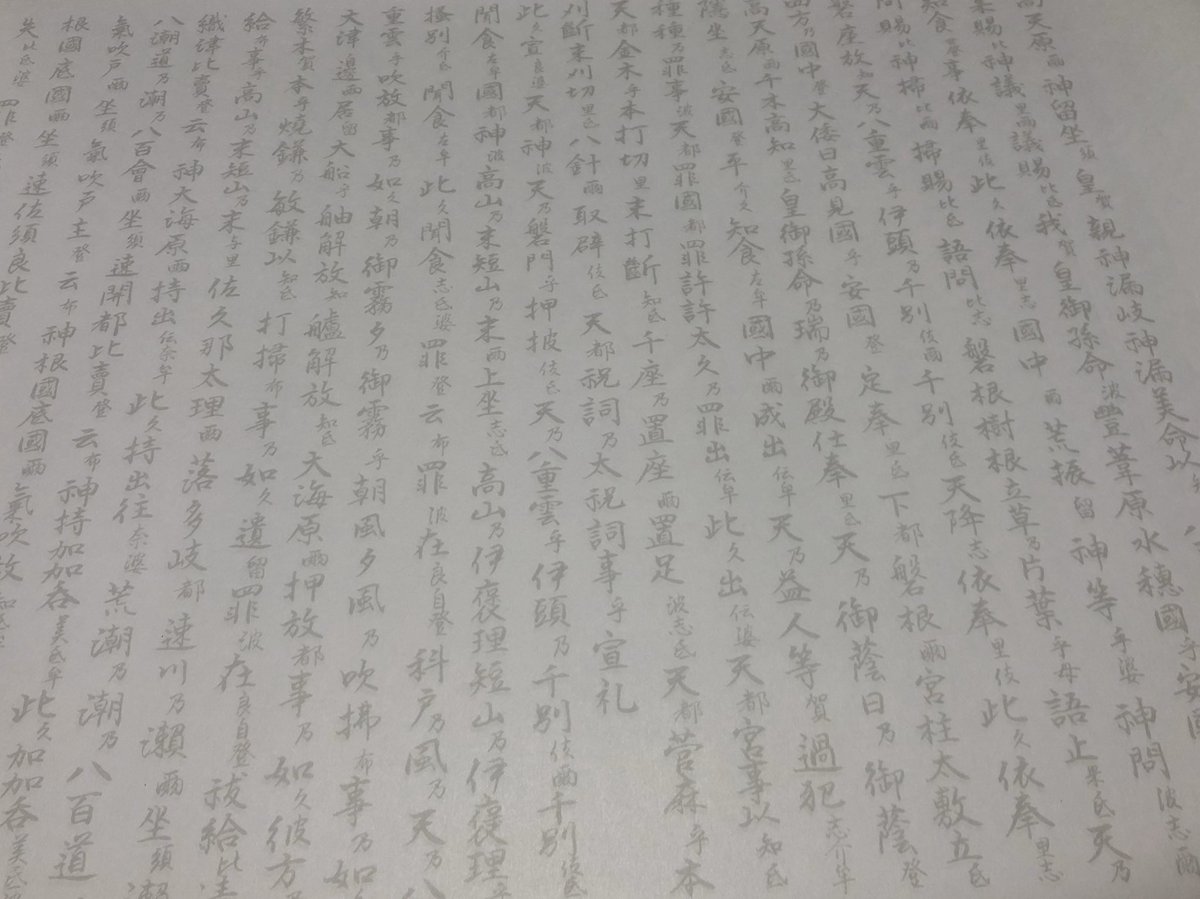 高天原爾神留坐須皇賀親神漏岐神漏美命以
集賜比神議里爾議賜比氐我賀皇御孫命波豐葦原水穗國乎安國
知食世登事依奉里伎此久依奉里志國中爾荒振留神等乎婆神問波志爾
問賜比神掃比爾掃賜比氐語問比志磐根樹根立草乃片葉乎母語止米氐天乃
磐座放知天乃八重雲乎伊頭乃千別伎爾千別伎氐天降志依奉里伎此久依奉里志
四方乃國中登大倭日高見國乎安國登定奉里氐下都磐根爾宮柱太敷立氐
高天原爾千木高知里氐皇御孫命乃瑞乃御殿仕奉里氐天乃御蔭日乃御蔭登
隱坐志氐安國登平介久知食左牟國中爾成出伝牟天乃益人等賀過犯志介牟
種種乃罪事波天都罪國都罪許許太久乃罪出伝牟此久出伝婆天都宮事以知氐
天都金木乎本打切里末打斷知氐千座乃置座爾置足波志氐天都菅麻乎本
刈斷末刈切里氐八針爾取辟伎氐天都祝詞乃太祝詞事乎宣礼
此久宣良婆天都神波天乃磐門乎押披伎氐天乃八重雲乎伊頭乃千別伎爾千別伎氐
聞食左牟國都神波高山乃末短山乃末爾上坐志氐高山乃伊褒理短山乃伊褒理乎
搔別介氐聞食左牟此久聞食志氐婆罪登云布罪波在良自登科戸乃風乃天乃八
重雲乎吹放都事乃如久朝乃御霧夕乃御霧乎朝風夕風乃吹拂布事乃如
大津邊爾居留大船乎舳解放知艫解放知氐大海原爾押放都事乃如久彼方乃
繁木賀本乎燒鎌乃敏鎌以知氐打掃布事乃如久遺留罪波在良自登祓給比
給布事乎高山乃末短山乃末与里佐久那太理爾落多岐都速川乃瀬爾坐須瀬
織津比賣登云布神大海原爾持出伝奈牟此久持出往奈婆荒潮乃潮乃八百道
八潮道乃潮乃八百會爾坐須速開都比賣登云布神持加加吞美氐牟此久加加吞美氐
氣吹戸爾坐須氣吹戸主登云布神根國底國爾氣吹放知氐
根國底國爾坐須速佐須良比賣登
失比氐婆罪登